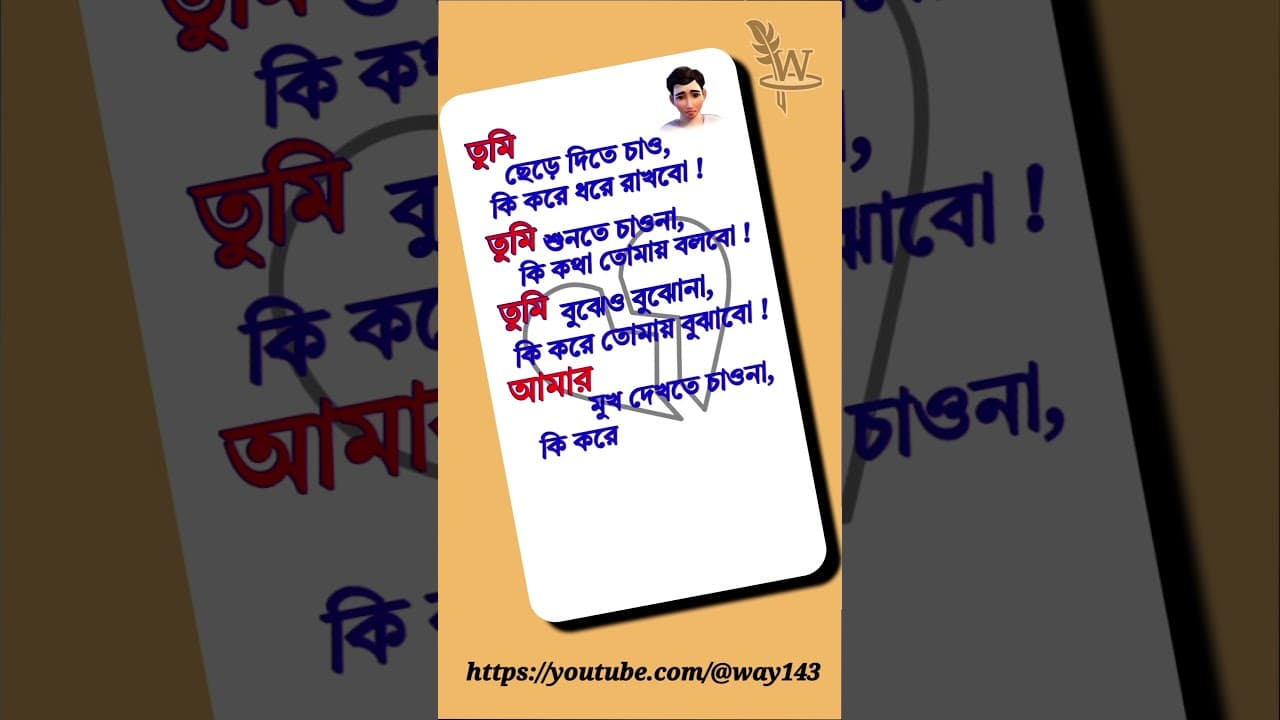 তুমি
ছেড়ে দিতে চাও,
কি করে ধরে রাখবো !
তুমি শুনতে চাওনা,
কি কথা তোমায় বলবো !
তুমি বুঝেও বুঝোনা,
কি করে তোমায় বুঝাবো !
আমার
মুখ দেখতে চাওনা,
কি করে
W
https://youtube.com/@way143